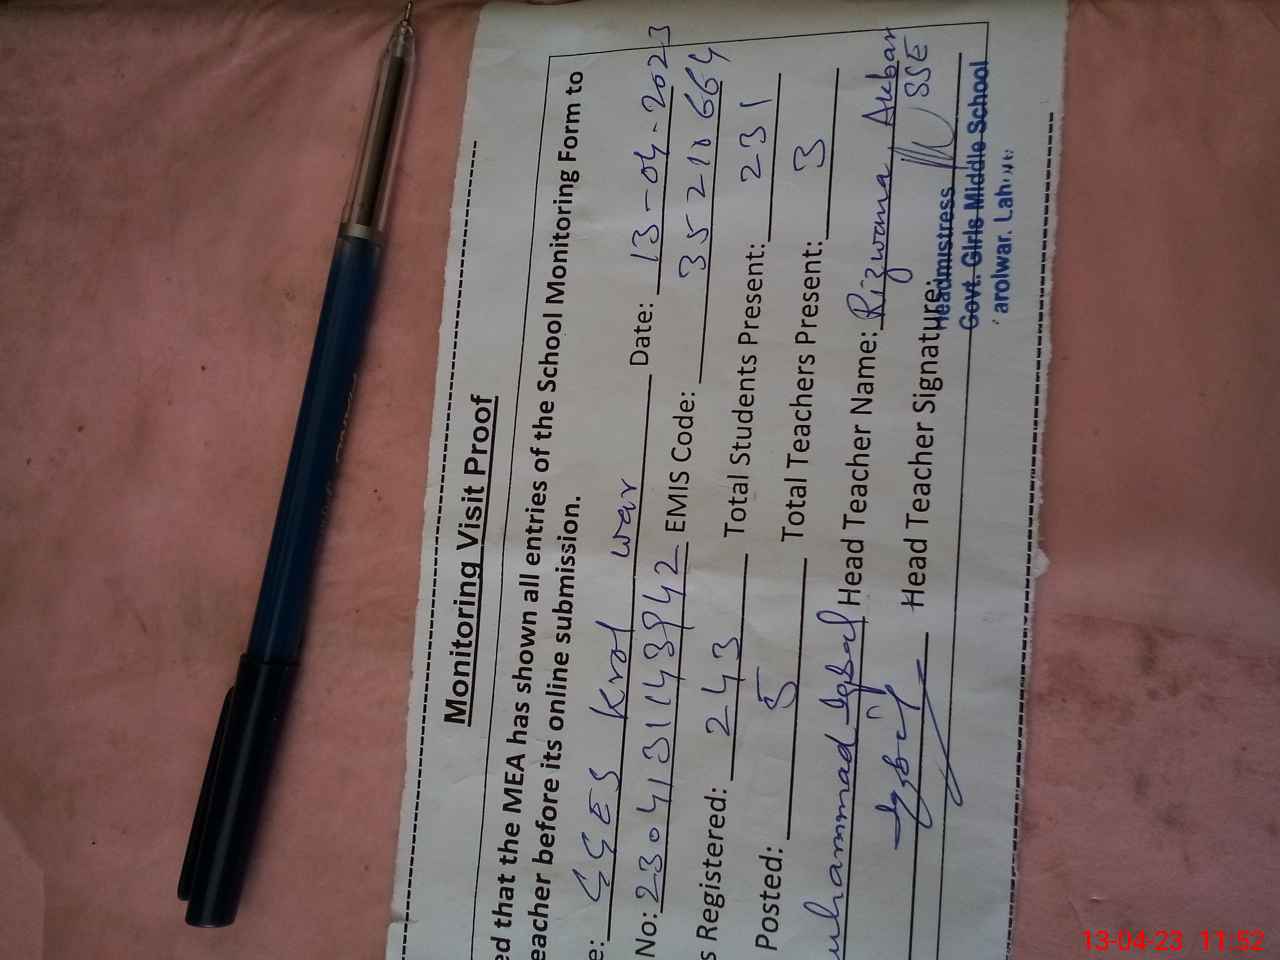 Monitoring Visit Proof
ed that the MEA has shown all entries of the School Monitoring Form to
eacher before its online submission.
e: GGES Krol war Date: 13-04-2023
No: 2304131143942 EMIS Code: 35210664
s Registered: 243 Total Students Present: 231
Posted: 5 Total Teachers Present: 3
uhammad Iqbal Head Teacher Name: Rizwana Akbar
Iqbal Head Teacher Signature: SSE
Headmistress
Govt. Girls Middle School
arolwar. Lahore
13-04-23 11:52